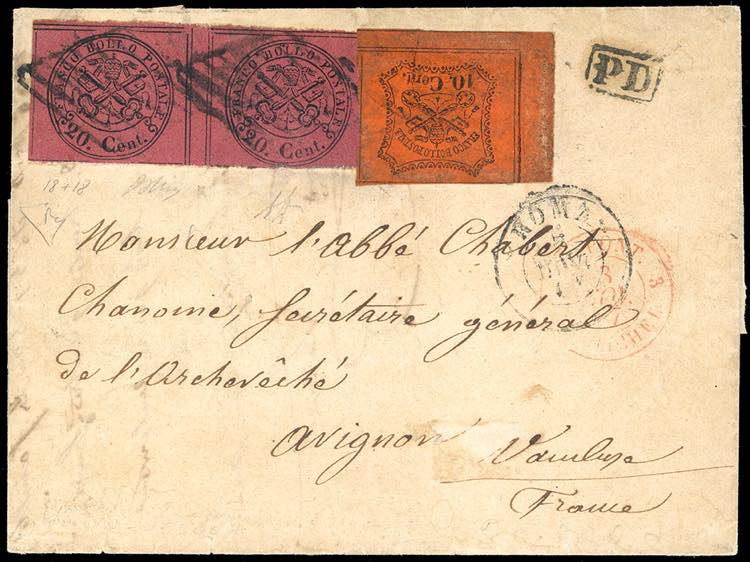 FRANCO BOLLO POSTALE
20. Cent.
FRANCO BOLLO POSTALE
20. Cent.
FRANCO BOLLO POSTALE
10. Cent.
PD
18+18
ROMA
3
Monsieur l'abbé Chabert
Chanoine, Secrétaire général
de l'Archevêché
Avignon Vaucluse
France